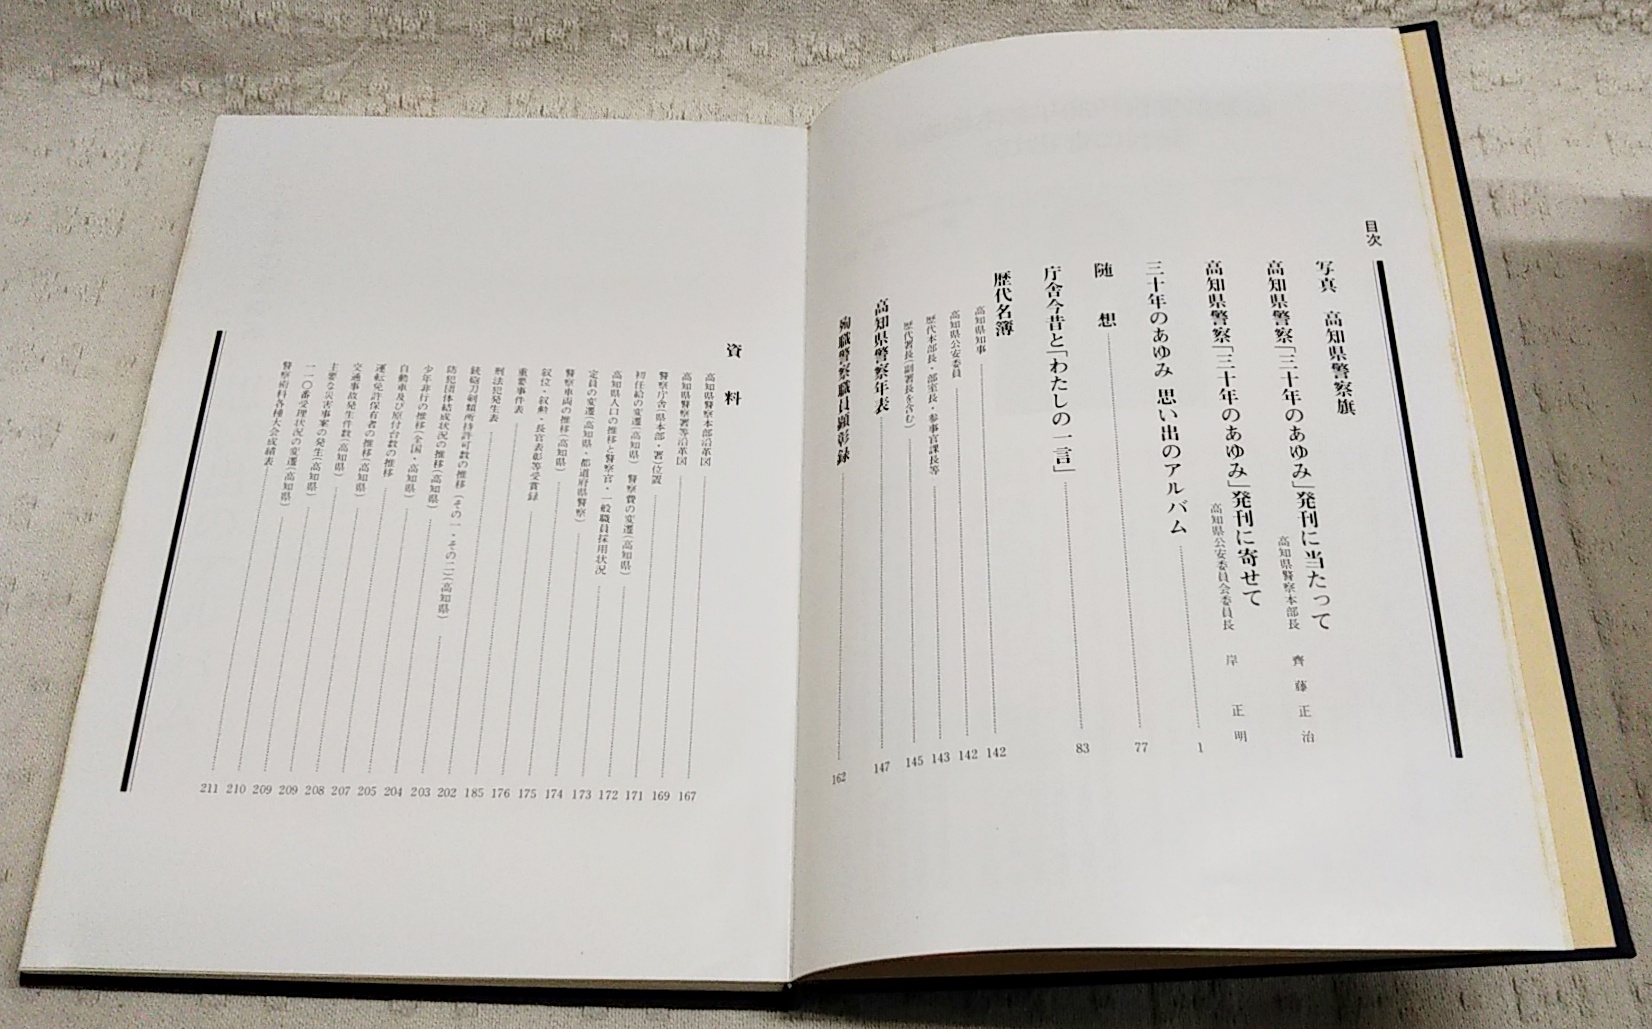 目次
写真 高知県警察旗
高知県警察「三十年のあゆみ」発刊に当たって
高知県警察本部長 齊藤正治
高知県警察「三十年のあゆみ」発刊に寄せて
高知県公安委員会委員長 岸 正明
三十年のあゆみ 思い出のアルバム 1
随 想 77
庁舎今昔と「わたしの一言」 83
歴代名簿
高知県知事 142
高知県公安委員 142
歴代本部長・部室長・参事官課長等 143
歴代署長(副署長を含む) 145
高知県警察年表 147
殉職警察職員顕彰録 162
資 料
高知県警察本部沿革図 167
高知県警察署等沿革図
警察庁舎(県本部・署)位置 169
初任給の変遷(高知県) 警察費の変遷(高知県) 171
高知県人口の推移と警察官・一般職員採用状況 172
定員の変遷(高知県・都道府県警察) 173
警察車両の推移(高知県) 174
叙位・叙勲・長官表彰等受賞録 175
重要事件表 176
刑法犯発生表 185
銃砲刀剣類所持許可数の推移(その一・その二)(高知県) 202
防犯団体結成状況の推移(高知県) 203
少年非行の推移(全国・高知県) 204
自動車及び原付台数の推移 205
運転免許保有者の推移(高知県) 207
交通事故発生件数(高知県) 208
主要な災害事案の発生(高知県) 209
一一〇番受理状況の変遷(高知県) 209
警察術科各種大会成績表 210
211